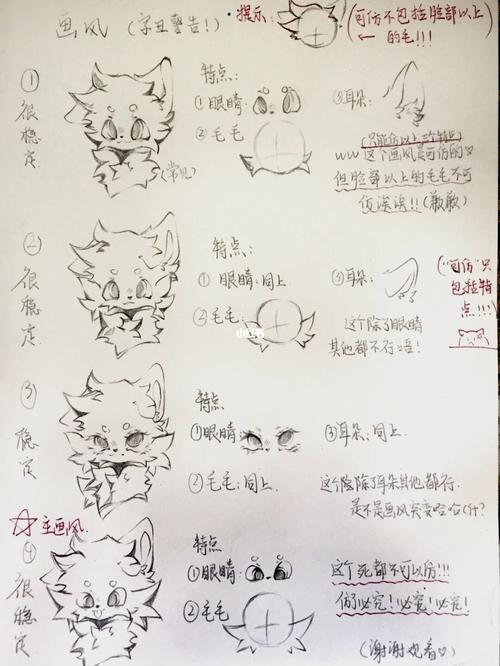 画风 (字丑警告!)
·提示:
(可仿不包括脸部以上
←的毛!!!)
①
很稳定
特点:
①眼睛:
②毛毛
③耳朵:
(常见)
(只能仿以上三个特点)
ww这个画风是可仿的♡
但脸部以上的毛毛不可
仿诶诶!!(歉歉)
②
很稳定
特点:
①眼睛:同上
②毛毛:
③耳朵:
这个除了眼睛
其他都不行唔!
("可仿"只
包括特
点!!!)
小红书
③
稳定
特点
①眼睛:
③耳朵:同上.
②毛毛:同上.
这个除了耳朵其他都行.
是不是画风突变哈哈(什?
☆主画风.
④
很稳定
特点
①眼睛:
②毛毛
这个死都不可以仿!!!
仿了必究!必究!必究!
(谢谢观看♡)